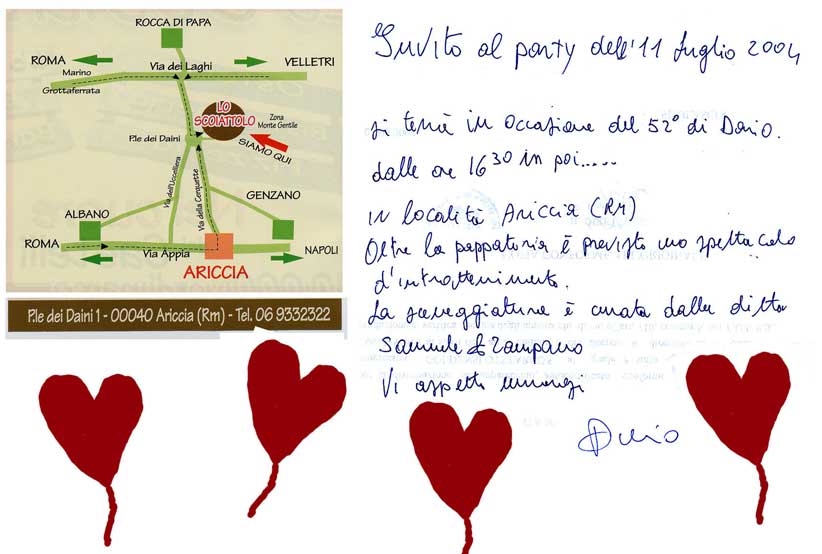 ROCCA DI PAPA
ROMA
Marino
Grottaferrata
Via dei Laghi
VELLETRI
LO
SCOIATTOLO
Zona
Monte Gentile
P.le dei Daini
SIAMO QUI
Via dell'Uccelliera
Via della Cerquette
GENZANO
ALBANO
ROMA
Via Appia
NAPOLI
ARICCIA
P.le dei Daini 1 - 00040 Ariccia (Rm) - Tel. 06 9332322
Invito al party dell'11 luglio 2004
si terrà in occasione del 52° di Dario.
dalle ore 16 30 in poi.....
in località Ariccia (RM)
Oltre la pappatoria è previsto uno spettacolo
d'intrattenimento.
La sceneggiatura è curata dalla ditta
Samuele & Zampano
Vi aspetto
Dario